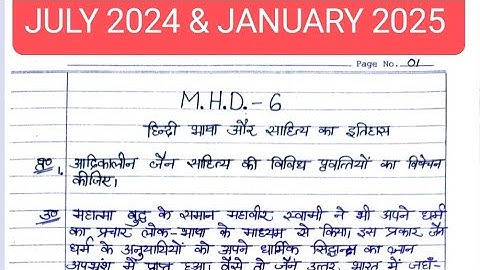 JULY 2024 & JANUARY 2025
Page No. 01
M.H.D.-6
हिन्दी भाषा और साहित्य का इतिहास
प्र० 1. आदिकालीन जैन साहित्य की विविध प्रवृत्तियों का विवेचन
कीजिए।
उ० महात्मा बुद्ध के समान महावीर स्वामी ने भी अपने धर्म
का प्रचार लोक-भाषा के माध्यम से किया। इस प्रकार जैन
धर्म के अनुयायियों को अपने धार्मिक सिद्धान्त का ज्ञान
अपभ्रंश में प्राप्त हुआ। वैसे तो जैन उत्तर भारत में जहाँ-